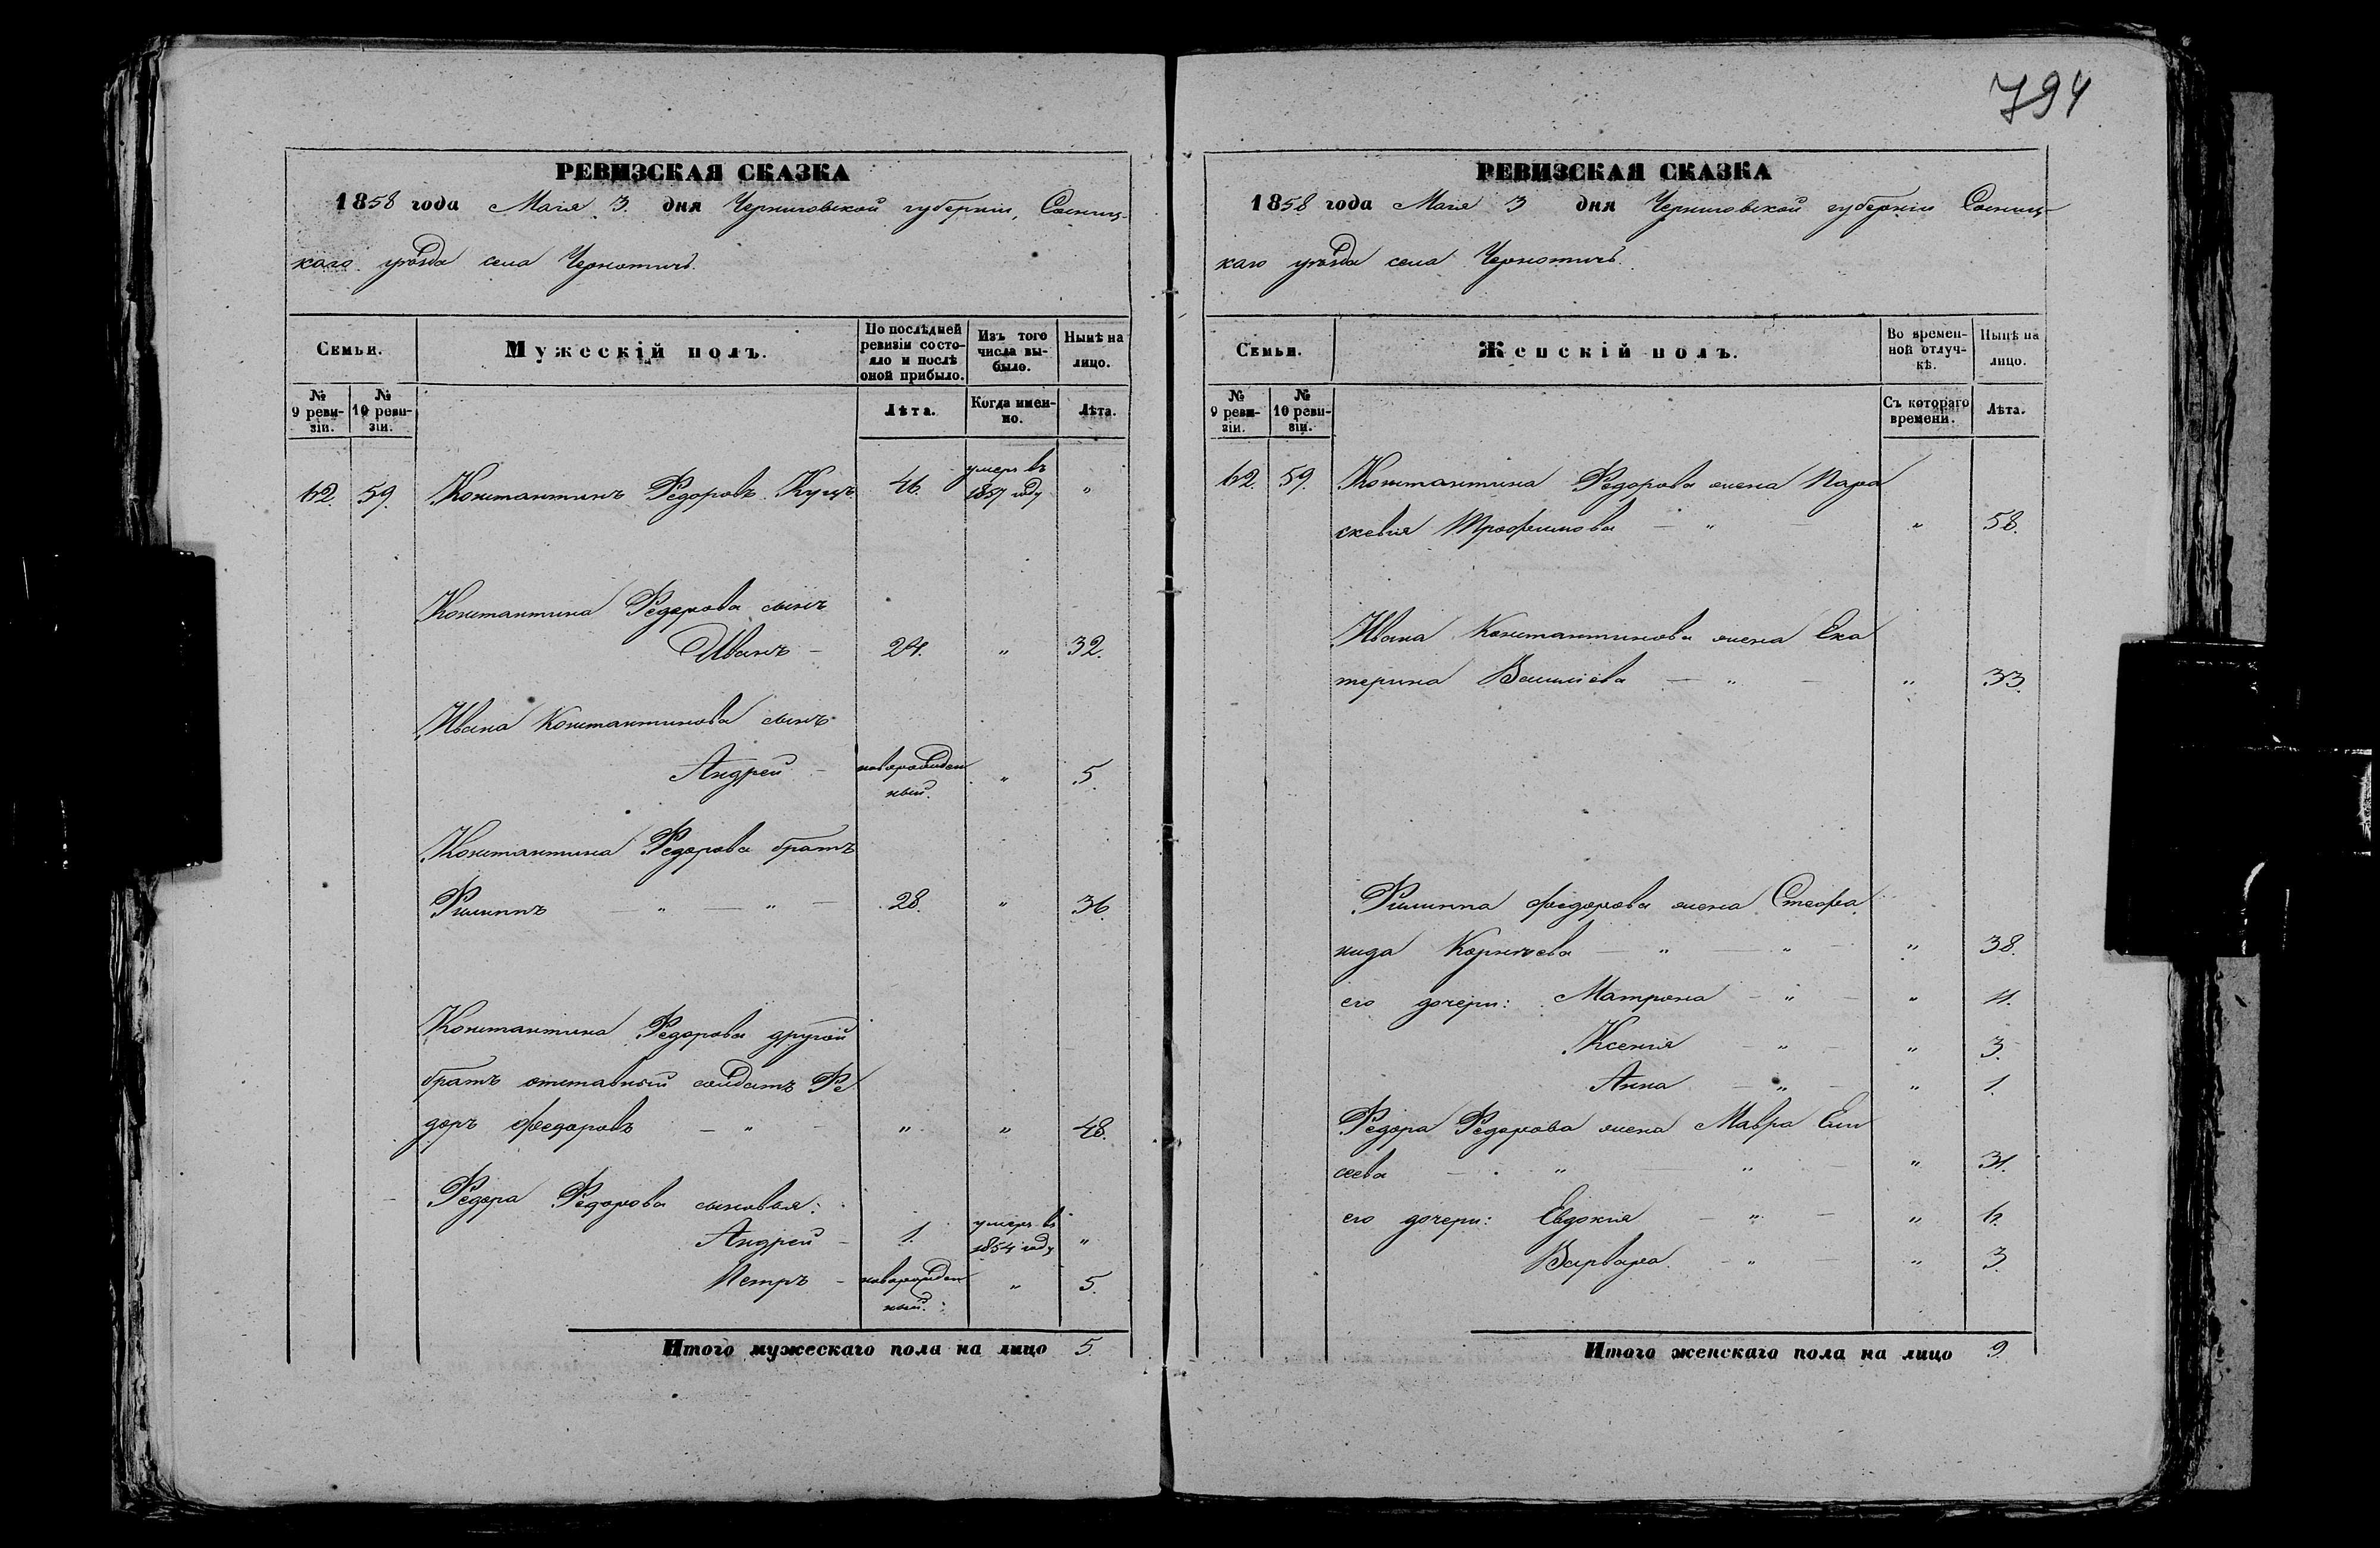 794
РЕВИЗСКАЯ СКАЗКА
1858 года Мая 3 дня Черниговской губернии, Сосниц-
каго уѣзда села Чернотичъ.
Семьи.
Мужескій полъ.
По послѣдней ревизіи состо-
яло и послѣ оной прибыло.
Изъ того числа вы-
было.
Нынѣ на лицо.
№ 9 реви-
зіи.
№ 10 реви-
зіи.
Лѣта.
Когда имен-
но.
Лѣта.
62. 59. Константинъ Федоровъ Куцъ 46. умеръ въ 1857 году "
Константина Федорова сынъ
Иванъ - 24. " 32.
Ивана Константинова сынъ
Андрей - новорожден
ный. " 5.
Константина Федорова братъ
Филиппъ — " — " — 28. " 36.
Константина Федорова другой
братъ отставный солдатъ Фе
доръ Федоровъ — " — " " 48.
Федора Федорова сыновья:
Андрей - 1. умеръ въ 1854 году "
Петръ - новорожден
ный. " 5.
Итого мужескаго пола на лицо 5.
РЕВИЗСКАЯ СКАЗКА
1858 года Мая 3 дня Черниговской губерніи Сосниц-
каго уѣзда села Чернотичъ.
Семьи.
Женскій полъ.
Во времен-
ной отлуч-
кѣ.
Нынѣ на лицо.
№ 9 реви-
зіи.
№ 10 реви-
зіи.
Съ котораго времени.
Лѣта.
62. 59. Константина Федорова жена Пара
скевія Трофимова — " " 58.
Ивана Константинова жена Ека
терина Василіева — " — " 33.
Филиппа Федорова жена Стефа
нида Корнѣева — " — " — " 38.
его дочери: Матрона — " — " 11.
Ксенія — " — " 3.
Анна — " — " 1.
Федора Федорова жена Мавра Ели
сеева — " — " — " 31.
его дочери: Евдокія — " — " 12.
Варвара — " — " 3.
Итого женскаго пола на лицо 9.